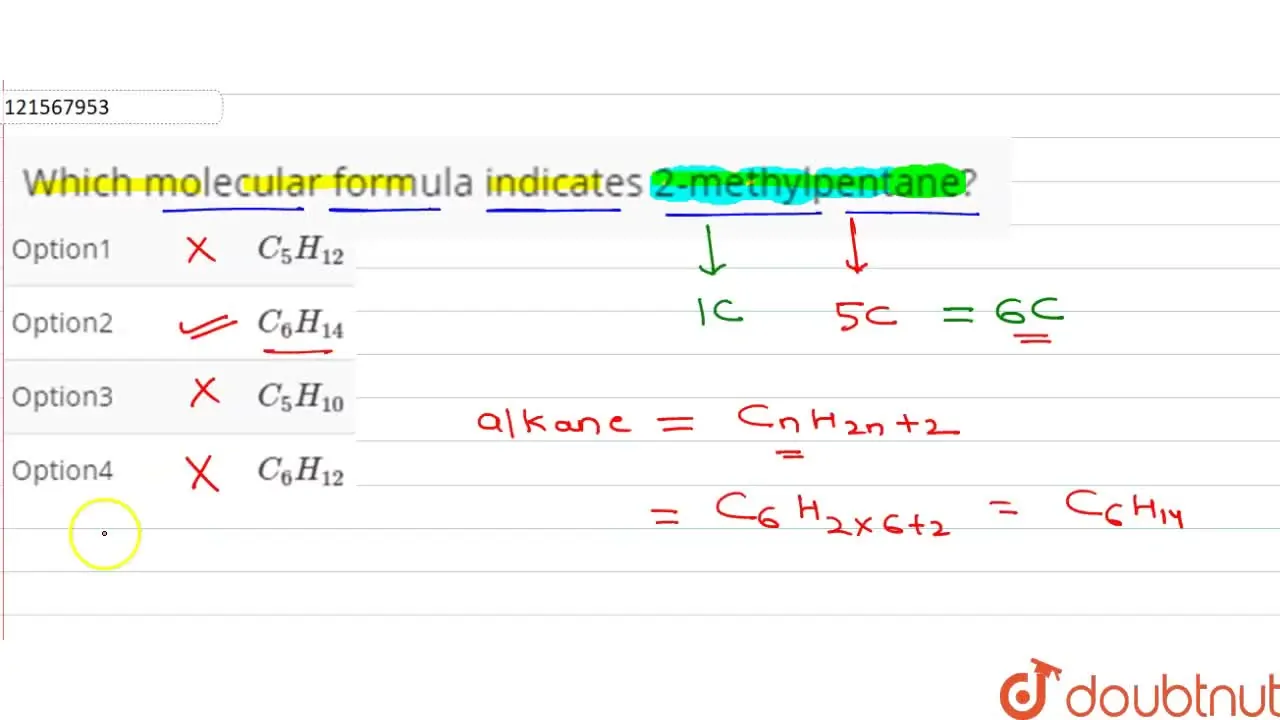 121567953
Which molecular formula indicates 2-methylpentane?
Option1 ✗ C₅H₁₂
Option2 ✓ C₆H₁₄
Option3 ✗ C₅H₁₀
Option4 ✗ C₆H₁₂
1C 5C = 6C
alkane = CₙH₂ₙ₊₂
= C₆H₂ₓ₆₊₂ = C₆H₁₄
doubtnut